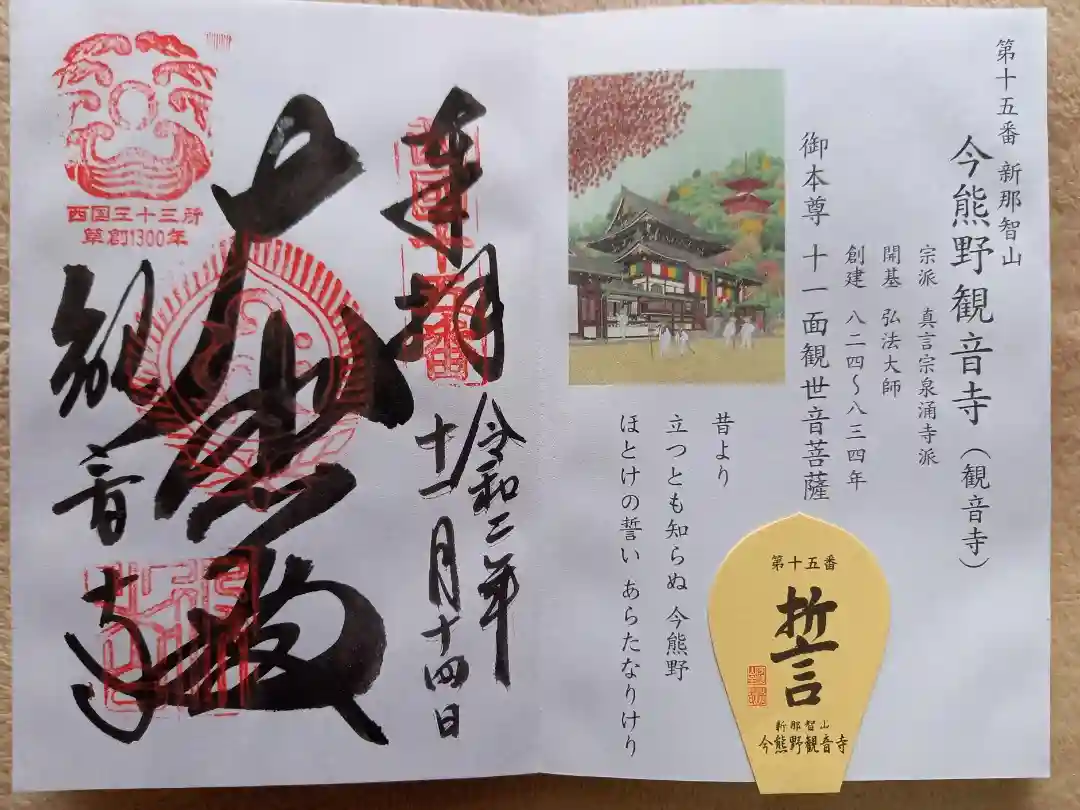 第十五番 新那智山
今熊野観音寺（観音寺）
宗派 真言宗泉涌寺派
開基 弘法大師
創建 八二四～八三四年
御本尊 十一面観世音菩薩
昔より
立つとも知らぬ 今熊野
ほとけの誓い あらたなりけり
第十五番
誓
新那智山
今熊野観音寺
奉拝
令和二年
十一月十四日
大悲殿
観音寺
西国三十三所
草創1300年